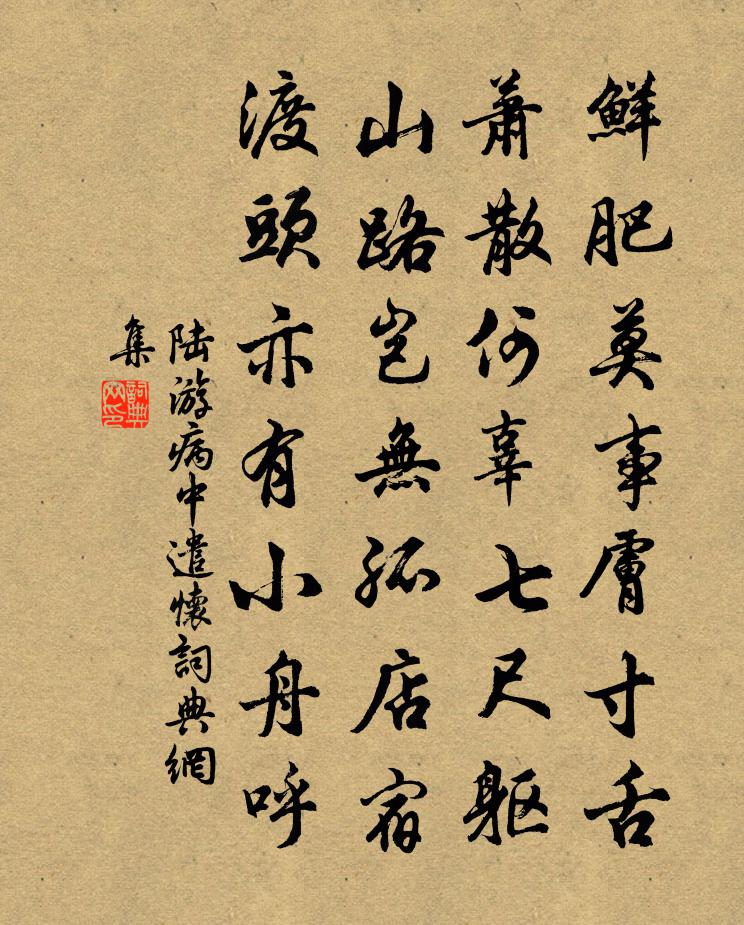 鮮肥莫事膚寸舌
蕭散何辜七尺軀
山路豈無孤店宿
渡頭亦有小舟呼
陸游病中遣懷詞典網
集
詞典
网印